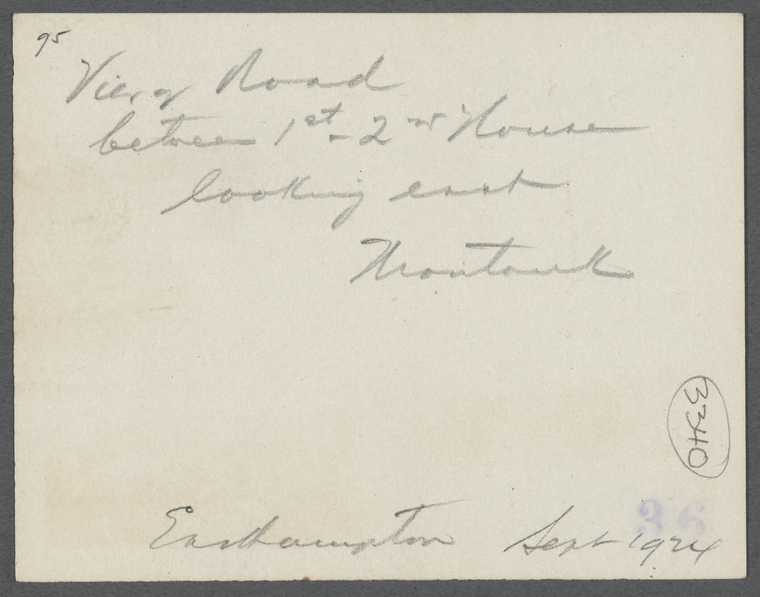 95
View of Road
between 1st - 2nd House
looking east
Montauk
3340
36
Easthampton Sept 1924